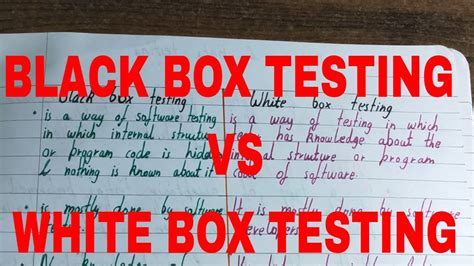 BLACK BOX TESTING
Black box testing
White box testing
• is a way of software testing
in which internal structure
or program code is hidden
& nothing is known about it
is a way of testing in which
has knowledge about the
internal structure or program
code of software
VS
• is mostly done by software
It is mostly done by software
developers
WHITE BOX TESTING
knowledge of